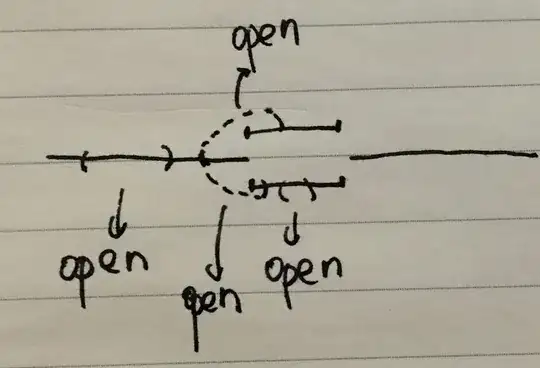 open
open
open
open